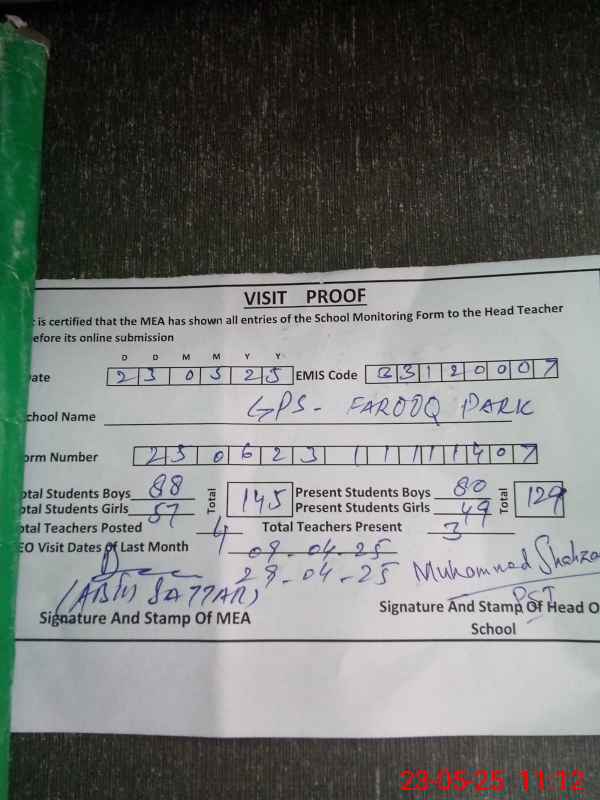 VISIT PROOF
t is certified that the MEA has shown all entries of the School Monitoring Form to the Head Teacher
efore its online submission
D D M M Y Y
ate 23 05 25 EMIS Code 33120007
chool Name GPS - FAROOQ PARK
orm Number 250623 1111407
otal Students Boys 88 Total 145 Present Students Boys 80 Total 129
otal Students Girls 57 Present Students Girls 49
otal Teachers Posted 4 Total Teachers Present 3
EO Visit Dates of Last Month 09-04-25
29-04-25 Muhammad Shahza
(ABDU SATTAR) PST
Signature And Stamp Of MEA Signature And Stamp Of Head O
School
23-05-25 11:12